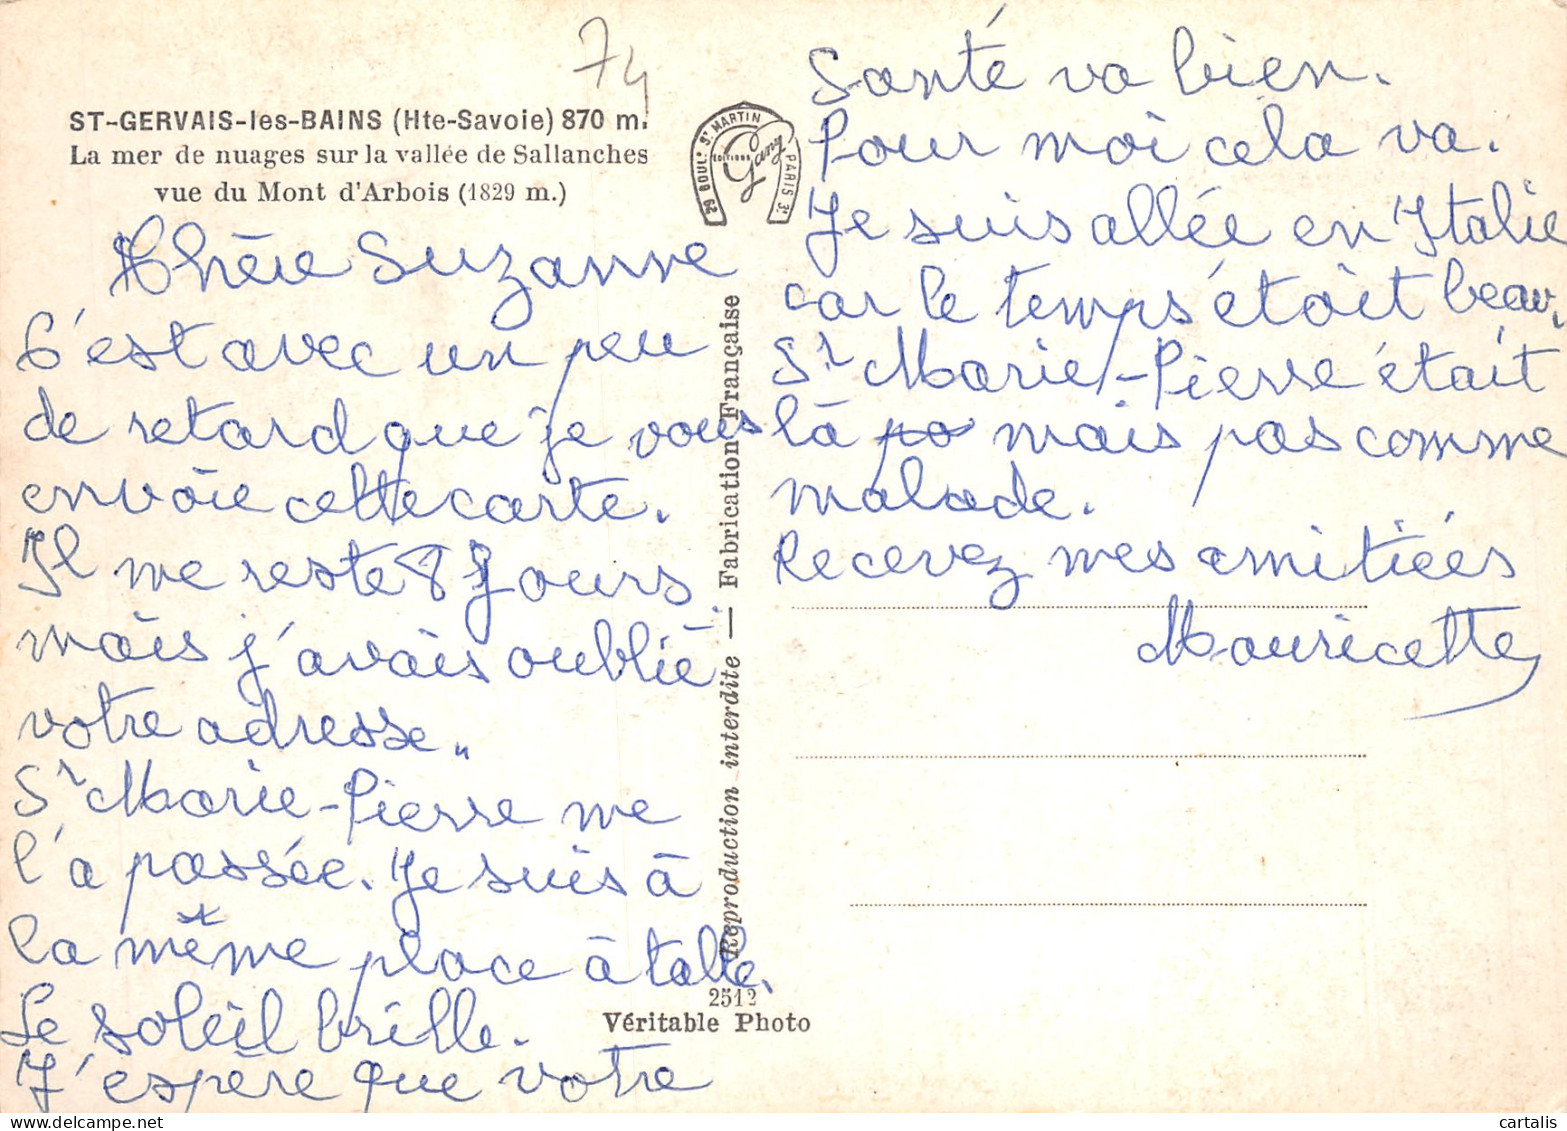 74
ST-GERVAIS-les-BAINS (Hte-Savoie) 870 m.
La mer de nuages sur la vallée de Sallanches
vue du Mont d'Arbois (1829 m.)
62 BOULᴰ Sᵗ MARTIN PARIS 3ᵉ
EDITIONS
Gang
Chère Suzanne
C'est avec un peu
de retard que je vous
envoie cette carte.
Il me reste 8 Jours
mais j'avais oublié
votre adresse.
Sr Marie-Pierre me
l'a passée. Je suis à
la même place à table.
Le soleil brille.
J'espère que votre
Reproduction interdite — Fabrication Française
2512
Véritable Photo
Santé va bien.
Pour moi cela va.
Je suis allée en Italie
car le temps était beau.
Sr Marie-Pierre était
là pa mais pas comme
malade.
Recevez mes amitiées
Mauricette
cartalis